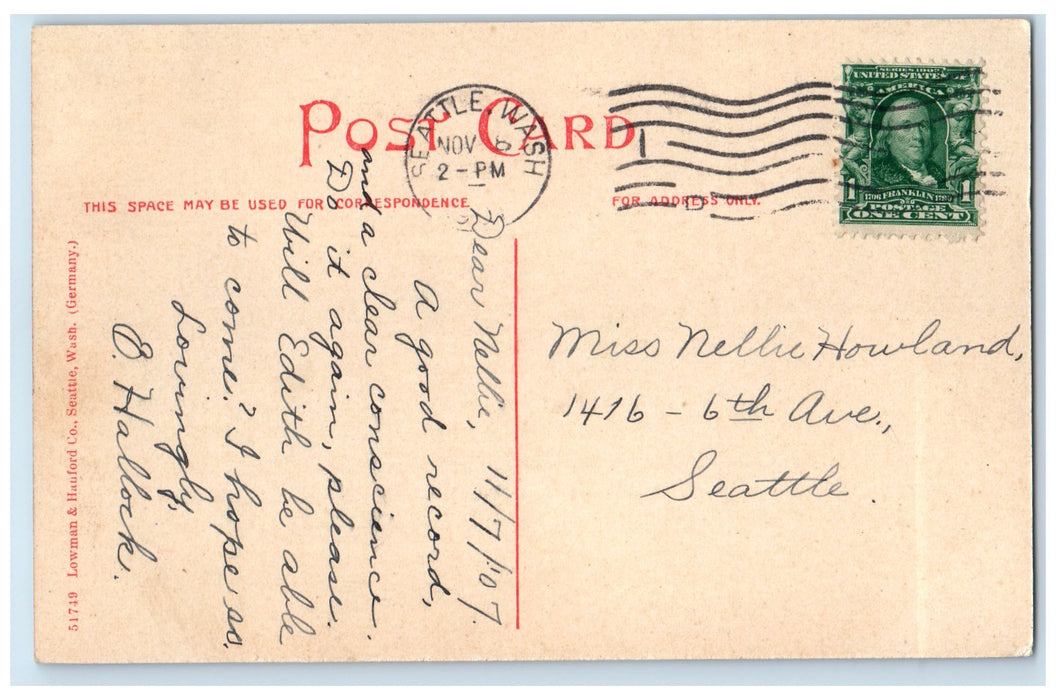 POST CARD
SEATTLE, WASH
NOV 8
2-PM
D
SERIES 1902
UNITED STATES OF
AMERICA
1 1706 FRANKLIN 1790 1
POSTAGE
ONE CENT
THIS SPACE MAY BE USED FOR CORRESPONDENCE
FOR ADDRESS ONLY.
Dear Nellie, 11/7/07.
A good record,
and a clear conscience.
Do it again, please.
Will Edith be able
to come? I hope so.
Lovingly,
E. Hallock.
Miss Nellie Howland,
1416 - 6th Ave.,
Seattle.
51749 Lowman & Hanford Co., Seattle, Wash. (Germany.)